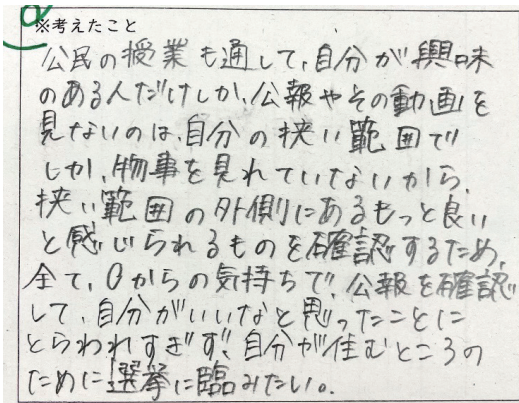 ※考えたこと
公民の授業も通して、自分が興味
のある人だけしか、公報やその動画を
見ないのは、自分の狭い範囲で
しか、物事を見れていないから、
狭い範囲の外側にあるもっと良い
と感じられるものを確認するため、
全て、0からの気持ちで、公報を確認
して、自分がいいなと思ったことに
とらわれすぎず、自分が住むところの
ために選挙に臨みたい。